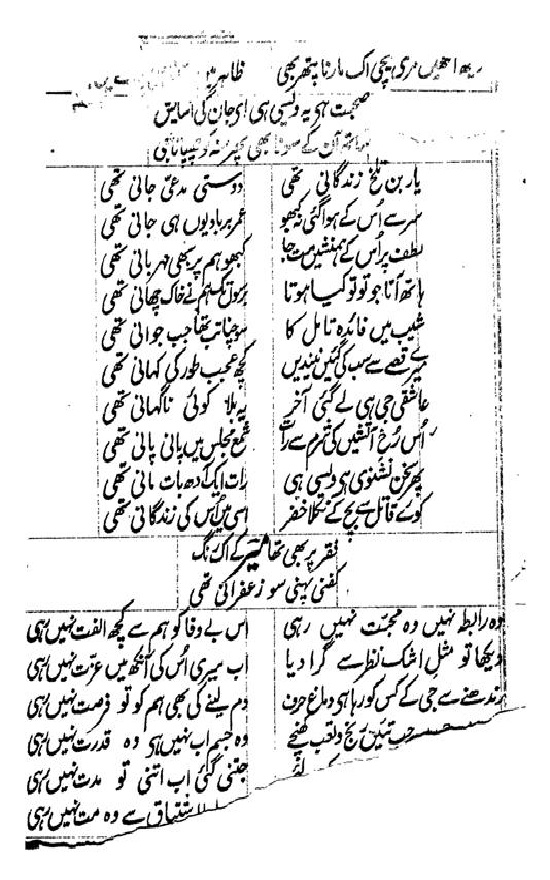 اک مارنا پتھر بھی ظاہر
صحبت ہے یہ ویسی ہی اے جان کی آسایش
ساتھ آن کے سونا بھی پھر منہ کو چھپانا بھی
یار بن تلخ زندگانی تھی دوستی مدعی جانی تھی
سر سے اُس کے ہوا گئی نہ کبھو عمر برباد یوں ہی جانی تھی
لطف پر اُس کے ہمنشیں مت جا کبھو ہم پر بھی مہربانی تھی
ہاتھ آتا جو تو تو کیا ہوتا برسوں تک ہم نے خاک چھانی تھی
شیب میں فائدہ تامل کا سوچنا تب تھا جب جوانی تھی
میرے قصے سے سب کی گئیں نیندیں کچھ عجیب طور کی کہانی تھی
عاشقی جی ہی لے گئی آخر یہ بلا کوئی ناگہانی تھی
اُس رُخ آتشیں کی شرم سے رات شمع مجلس میں پانی پانی تھی
پھر سخن نشنوی ہے ویسی ہی رات ایک آدھ بات مانی تھی
کوے قاتل سے بچ کے نکلا خضر اسی میں اُس کی زندگانی تھی
فقر پر بھی تھا میر کے اک رنگ
کفنی پہنی سو زعفرانی تھی
وہ رابطہ نہیں وہ محبت نہیں رہی اس بے وفا کو ہم سے کچھ الفت نہیں رہی
دیکھا تو مثل اشک نظر سے گرا دیا اب میری اُس کی آنکھ میں عزت نہیں رہی
رندھنے سے جی کے کس کو رہا ہے دماغ حرف دم لینے کی بھی ہم کو تو فرصت نہیں رہی
جب تئیں رنج و تعب کھنچے وہ جسم اب نہیں ہے وہ قدرت نہیں رہی
جتنی گئی اب اتنی تو مدت نہیں رہی
اشتیاق سے وہ مت نہیں رہی